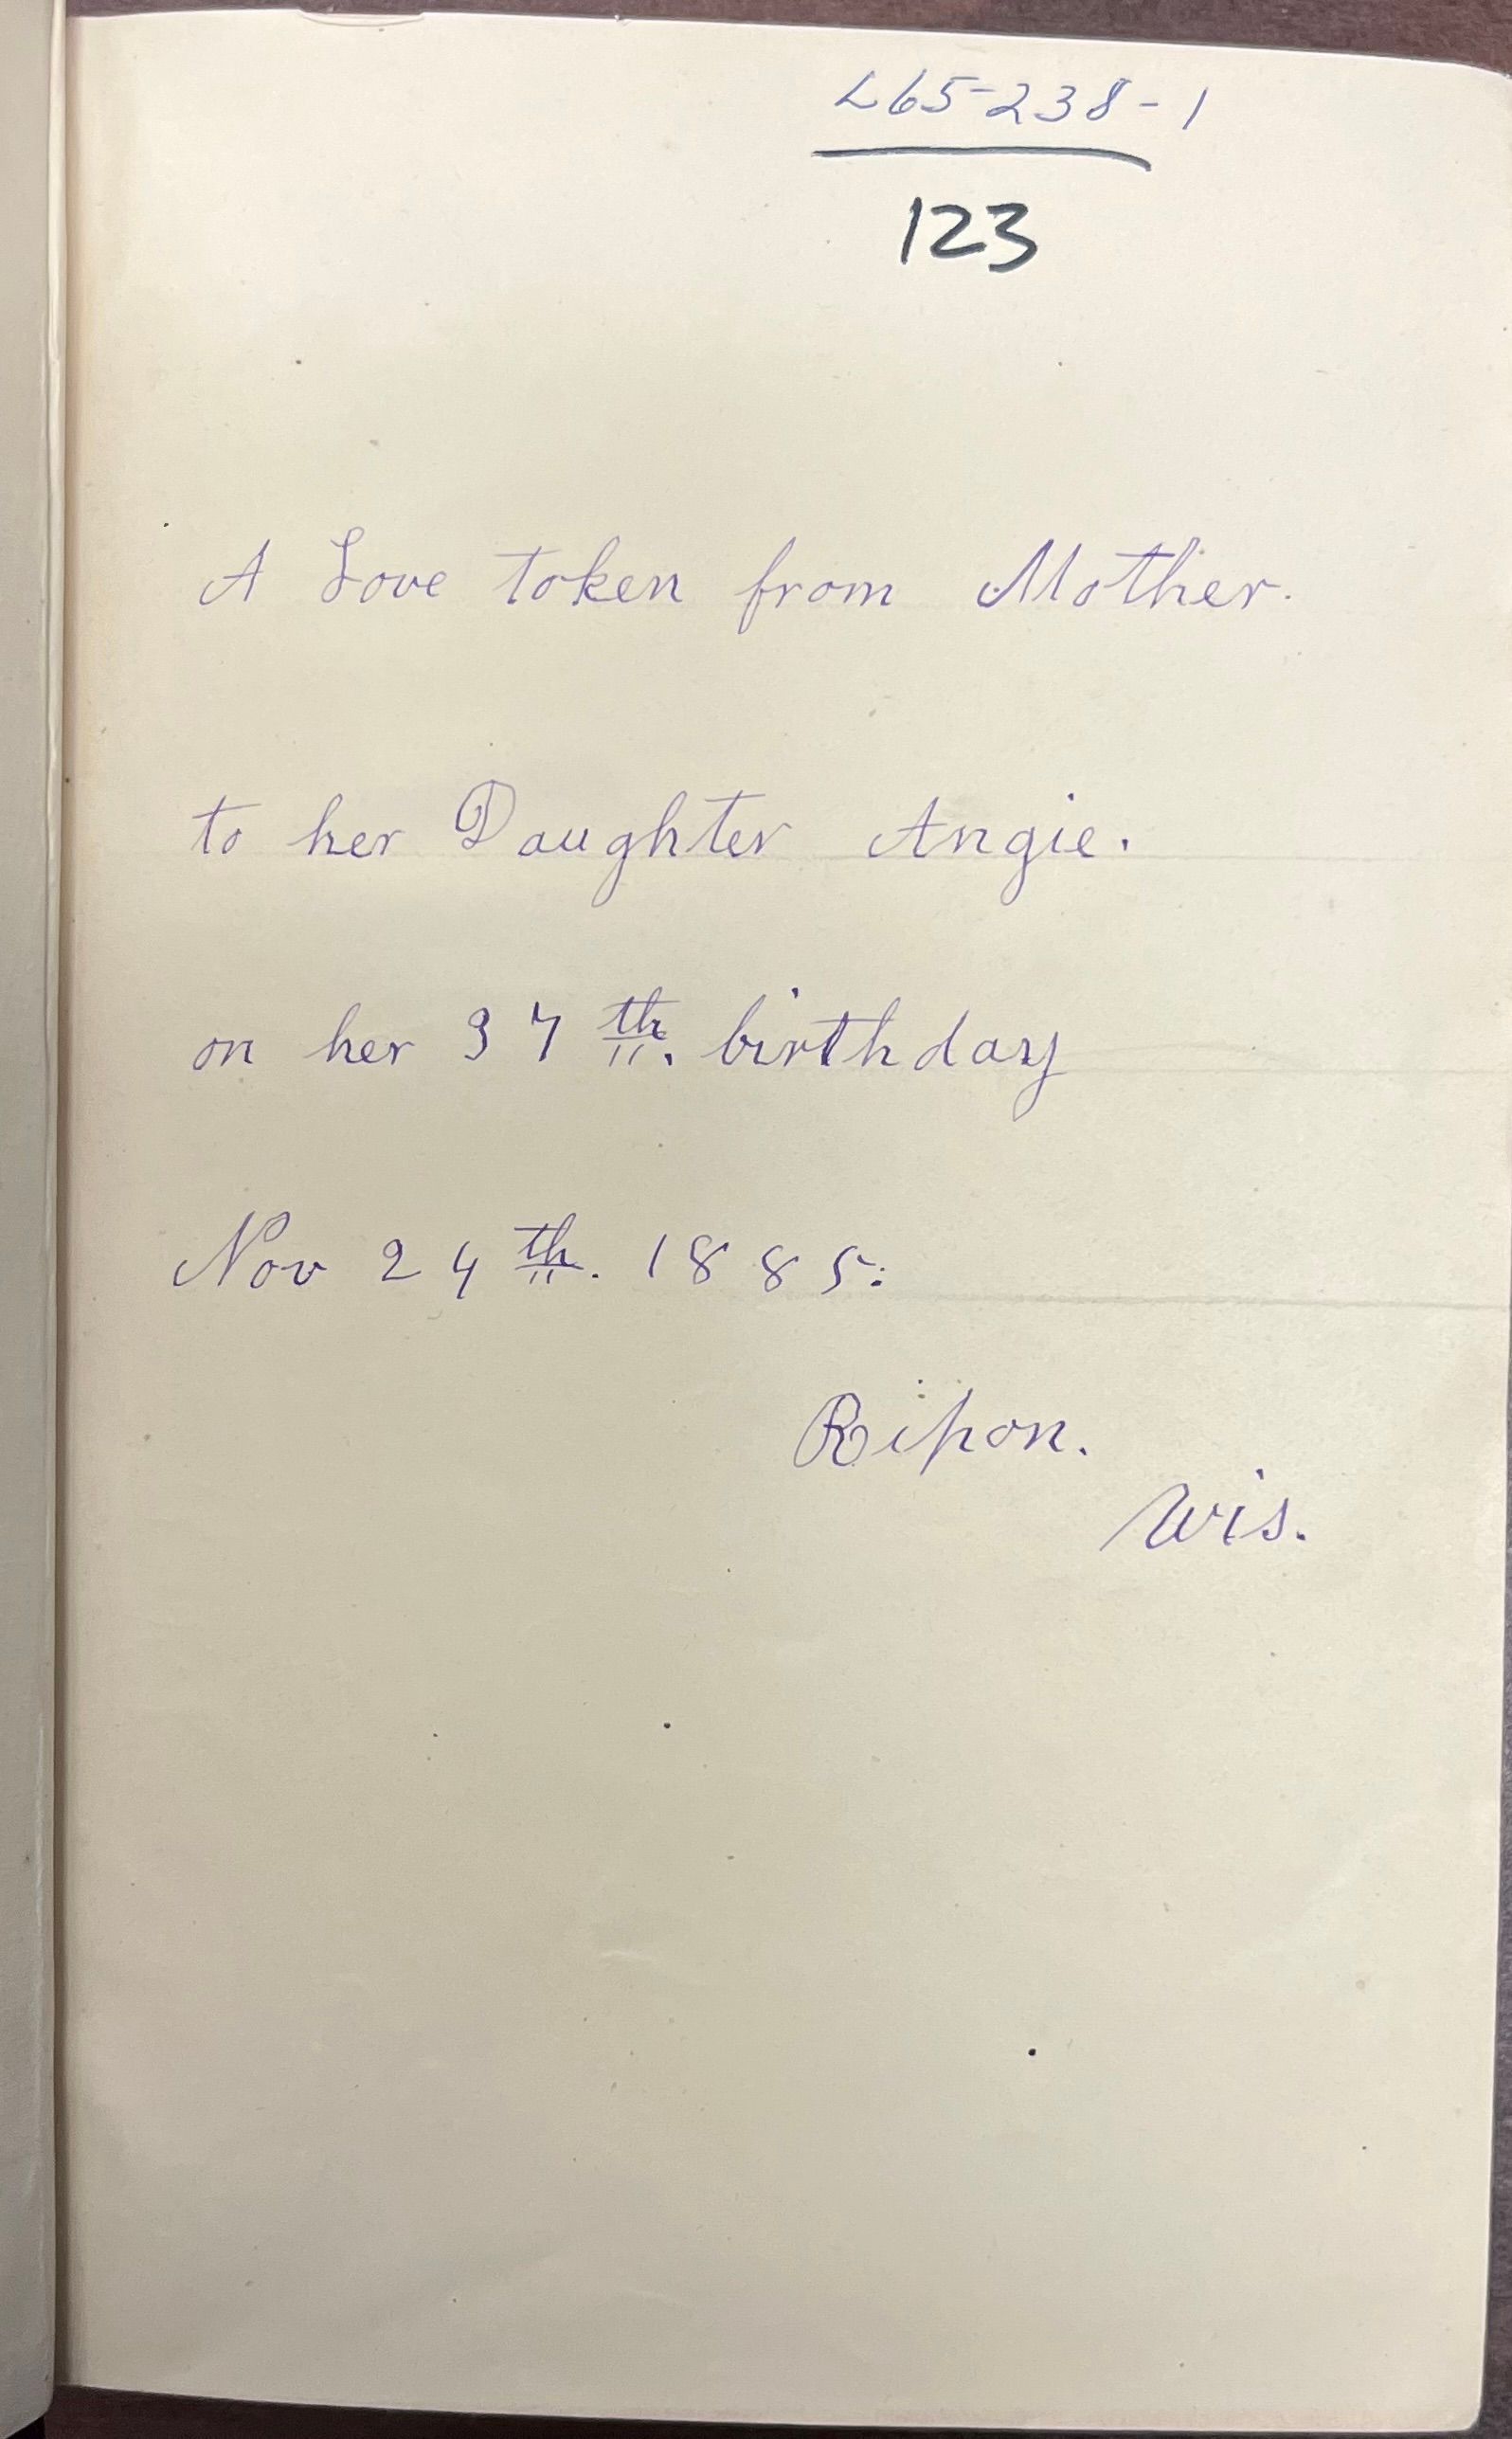 L65-238-1
123
A Love token from Mother.
to her Daughter Angie.
on her 37th. birthday
Nov 24th. 1885.
Ripon.
Wis.